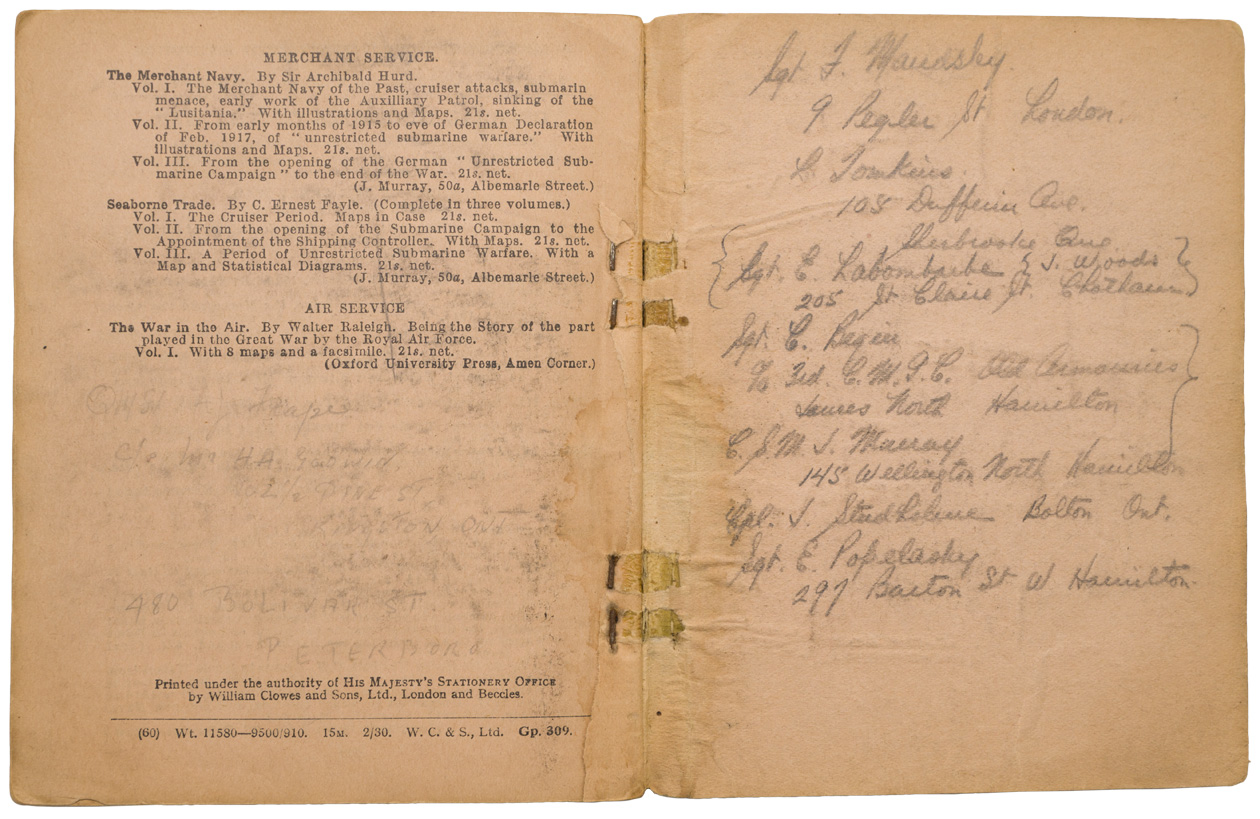 MERCHANT SERVICE.
The Merchant Navy. By Sir Archibald Hurd.
Vol. I. The Merchant Navy of the Past, cruiser attacks, submarin
menace, early work of the Auxilliary Patrol, sinking of the
"Lusitania." With illustrations and Maps. 21s. net.
Vol. II. From early months of 1915 to eve of German Declaration
of Feb. 1917, of "unrestricted submarine warfare." With
illustrations and Maps. 21s. net.
Vol. III. From the opening of the German "Unrestricted Sub-
marine Campaign" to the end of the War. 21s. net.
(J. Murray, 50a, Albemarle Street.)
Seaborne Trade. By C. Ernest Fayle. (Complete in three volumes.)
Vol. I. The Cruiser Period. Maps in Case 21s. net.
Vol. II. From the opening of the Submarine Campaign to the
Appointment of the Shipping Controller. With Maps. 21s. net.
Vol. III. A Period of Unrestricted Submarine Warfare. With a
Map and Statistical Diagrams. 21s. net.
(J. Murray, 50a, Albemarle Street.)
AIR SERVICE
The War in the Air. By Walter Raleigh. Being the Story of the part
played in the Great War by the Royal Air Force.
Vol. I. With 8 maps and a facsimile. 21s. net.
(Oxford University Press, Amen Corner.)
c/o Mr HA
PINE ST.
ONT
480 BOLIVAR ST.
PETERBORO
Printed under the authority of HIS MAJESTY'S STATIONERY OFFICE
by William Clowes and Sons, Ltd., London and Beccles.
(60) Wt. 11580—9500/910. 15M. 2/30. W. C. & S., Ltd. Gp. 309.
Sgt F.
9 Pegler St London.
L. Tomkins.
105 Dufferin Ave.
Sherbrooke Ave.
Sgt. E. Labombarbe & J. Woods
205 St Claire St. Chatham
Sgt. C.
c/o 3rd. C.M.G.C. Old Armouries
James North Hamilton
C.S.M. J. Murray
145 Wellington North Hamilton
Cpl. J. Bolton Ont.
Sgt. E. Popelasky
297 Barton St W Hamilton